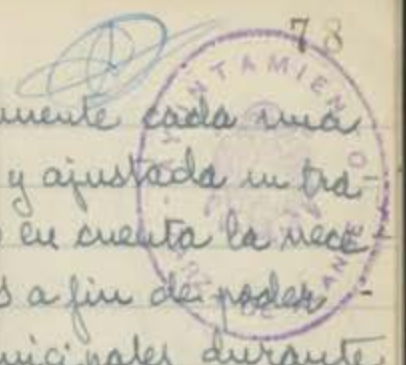 78
AYUNTAMIENTO
mente cada una
y ajustada su tra-
en cuenta la nece
s a fin de poder -
nicipales durante